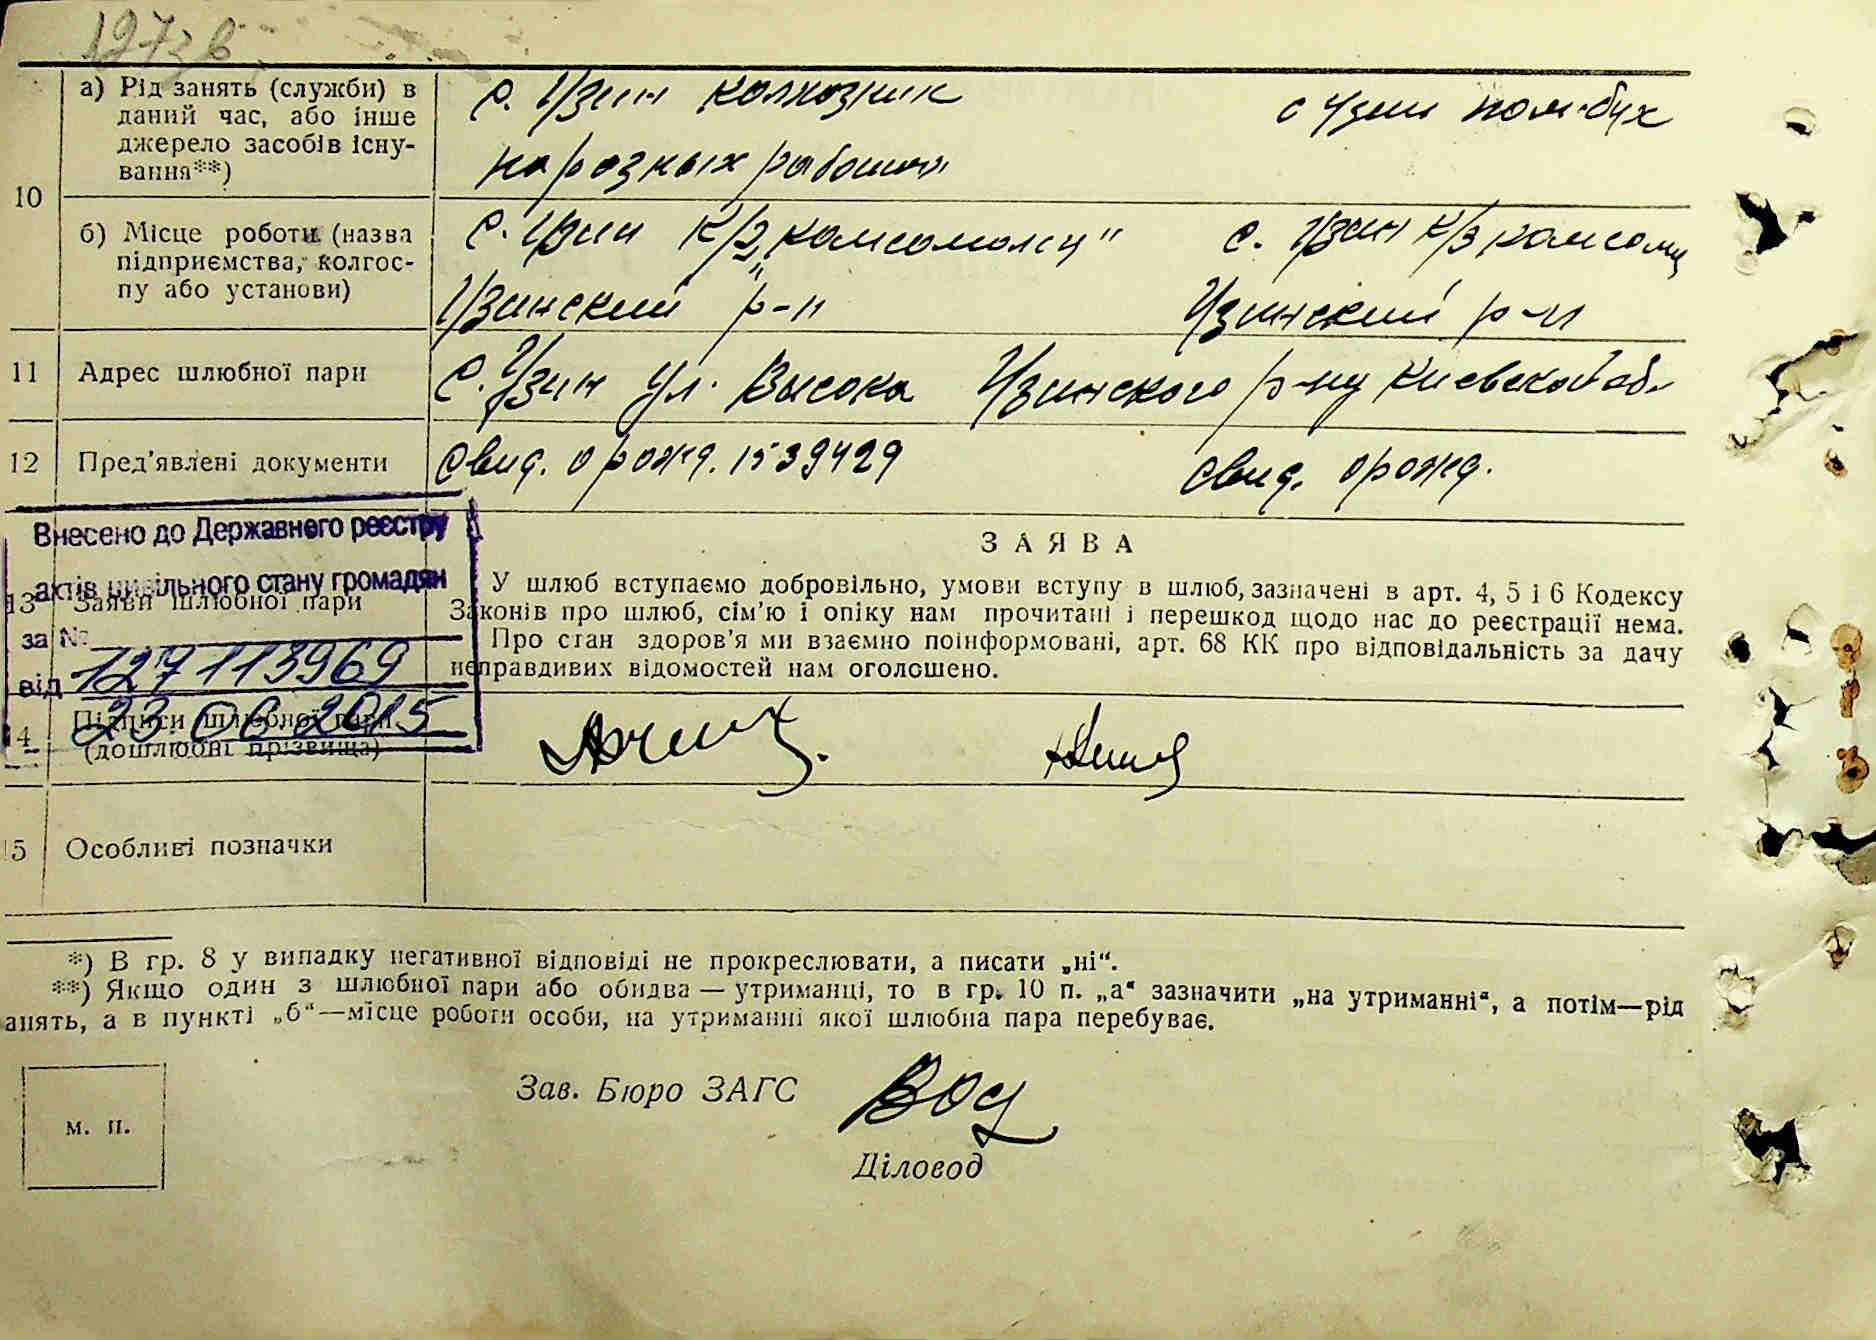 1273 в
10
а) Рід занять (служби) в
даний час, або інше
джерело засобів існу-
вання**)
с. Узин колхозник
на разных работах
с Узин пом. бух
б) Місце роботи (назва
підприємства, колгос-
пу або установи)
с. Узин к/з „комсомолец"
Узинский р-н
с. Узин к/з комсомолец
Узинский р-н
11
Адрес шлюбної пари
с. Узин ул. Высока Узинского р-ну Киевской обл
12
Пред'явлені документи
Свид. о рожд. 1539429
Свид. о рожд.
Внесено до Державного реєстру
актів цивільного стану громадян
за № 127113969
від 23.06.2015
13
Заяви шлюбної пари
ЗАЯВА
У шлюб вступаємо добровільно, умови вступу в шлюб, зазначені в арт. 4, 5 і 6 Кодексу
Законів про шлюб, сім'ю і опіку нам прочитані і перешкод щодо нас до реєстрації нема.
Про стан здоров'я ми взаємно поінформовані, арт. 68 КК про відповідальність за дачу
неправдивих відомостей нам оголошено.
14
Підписи шлюбної пари
(дошлюбні прізвища)
15
Особливі позначки
*) В гр. 8 у випадку негативної відповіді не прокреслювати, а писати „ні".
**) Якщо один з шлюбної пари або обидва — утриманці, то в гр. 10 п. „а" зазначити „на утриманні", а потім—рід
анять, а в пункті „б"—місце роботи особи, на утриманні якої шлюбна пара перебуває.
м. п.
Зав. Бюро ЗАГС
Діловод